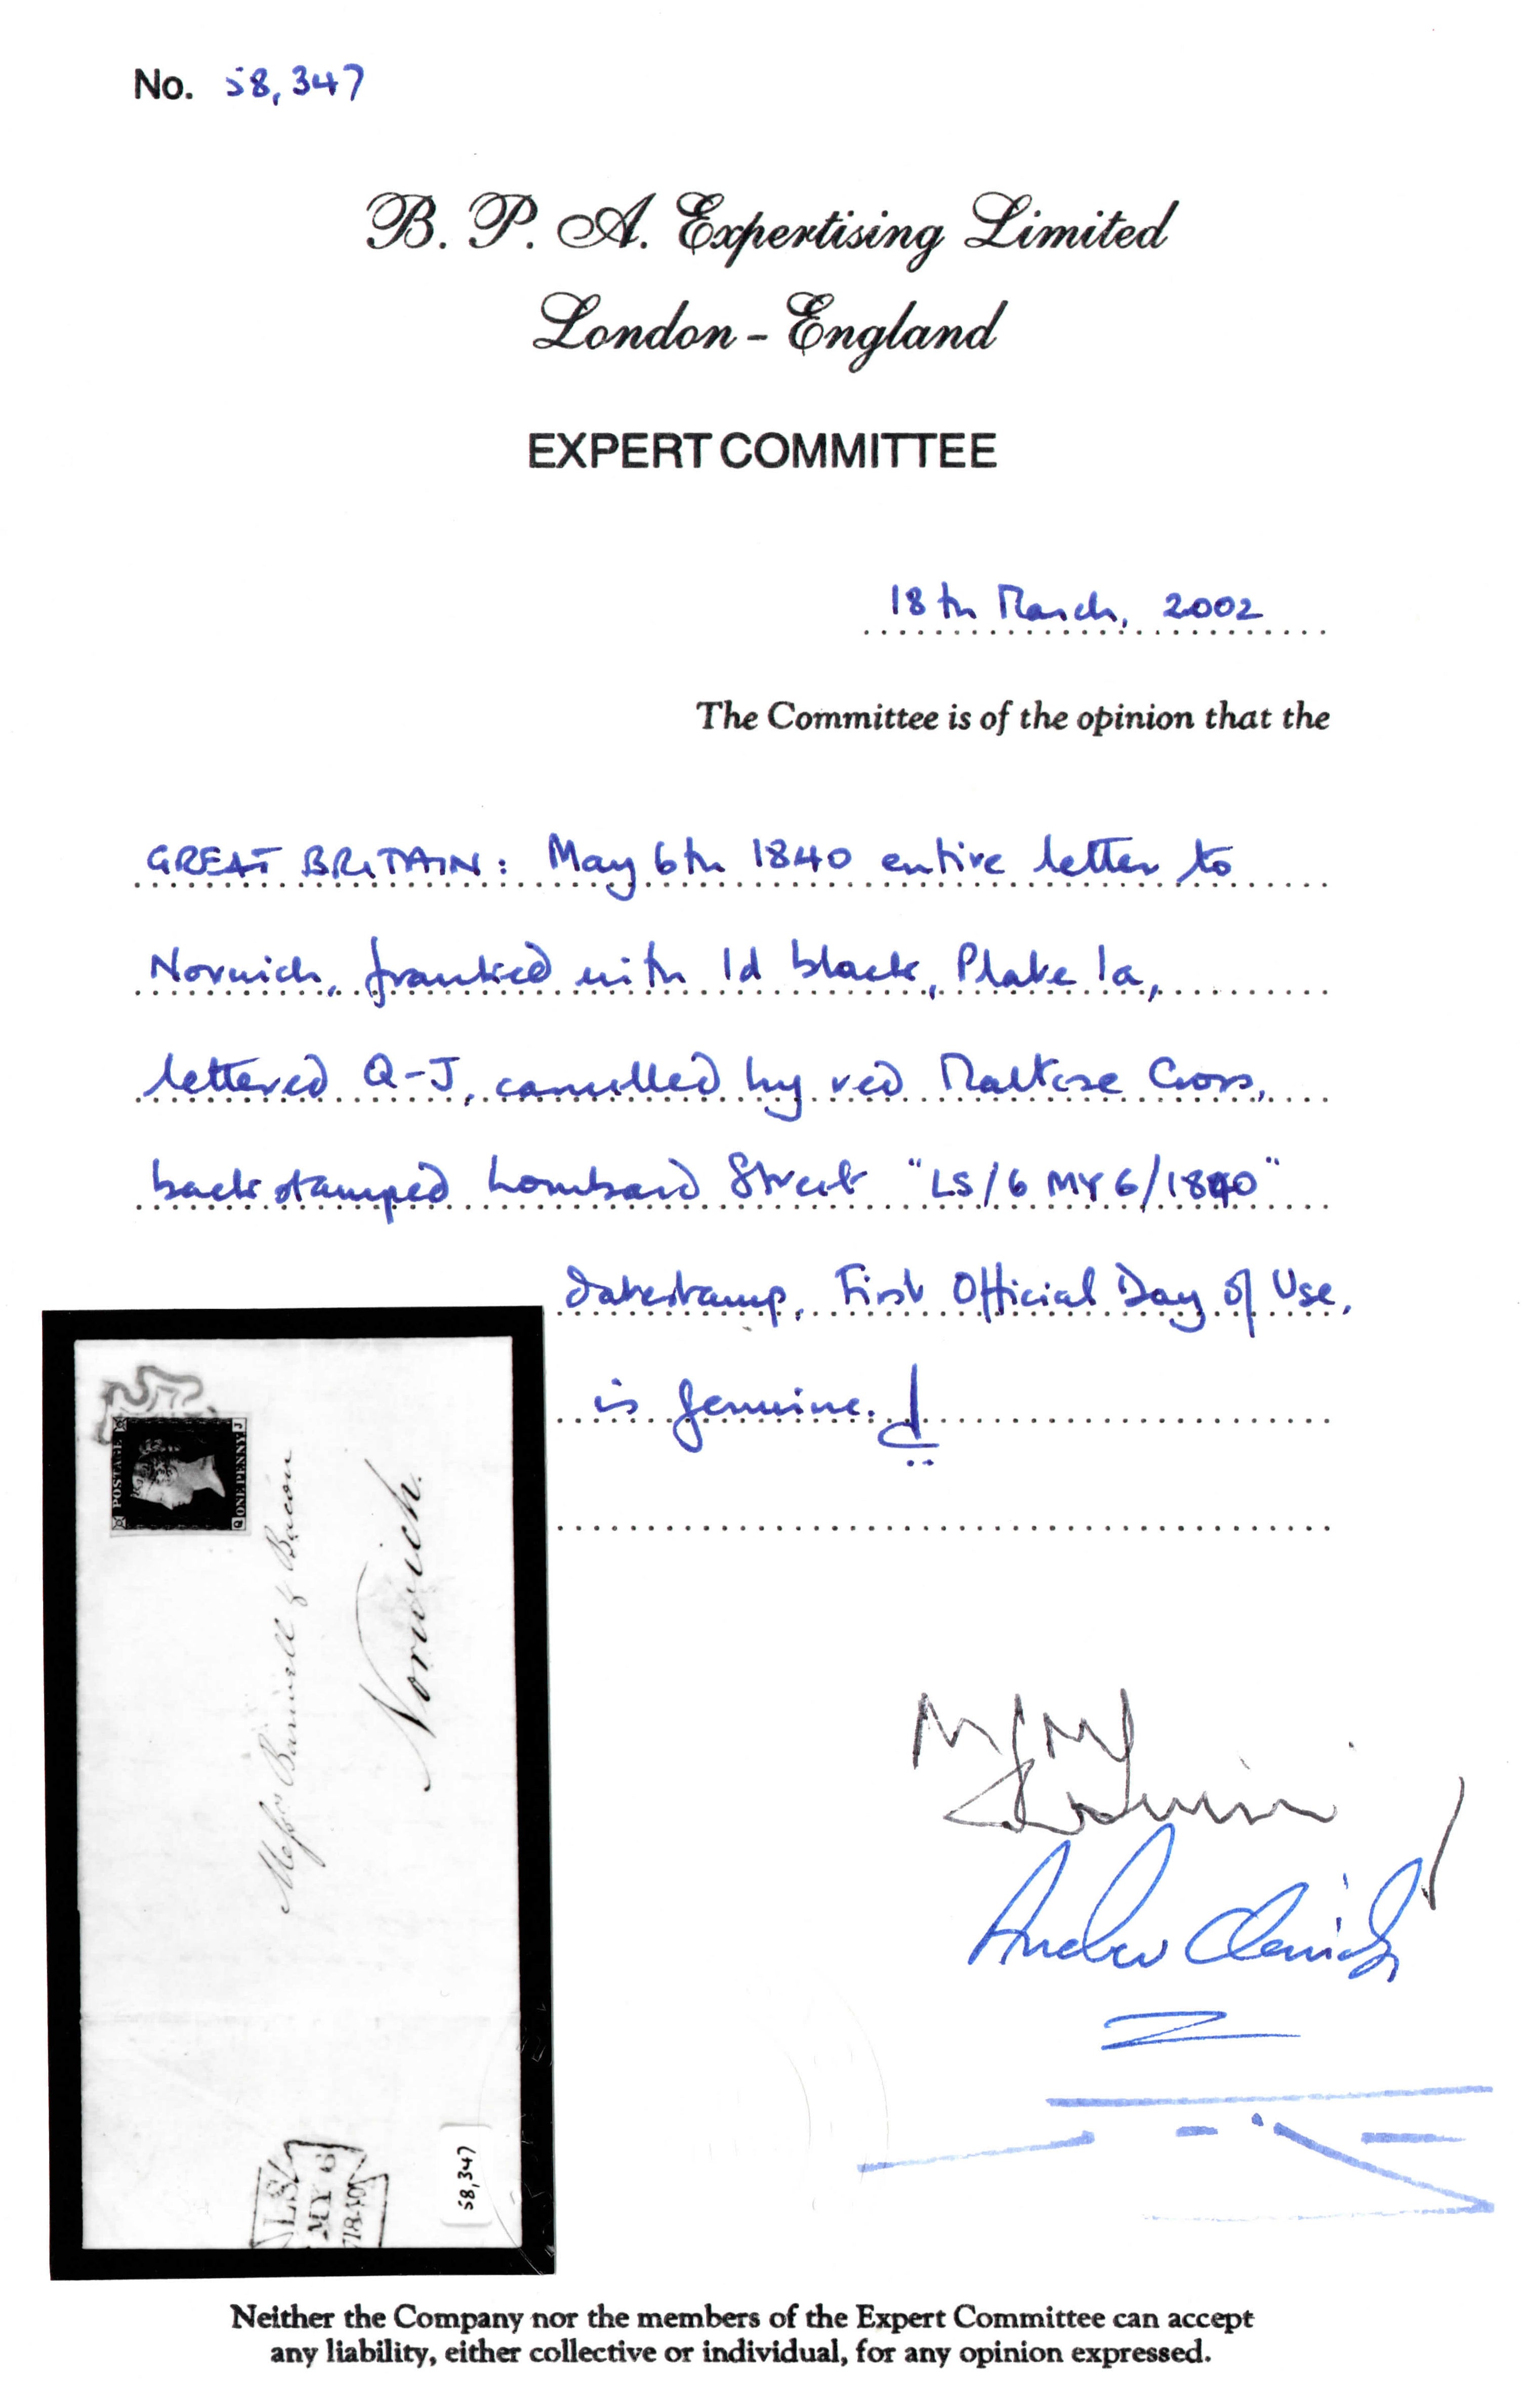 No. 58,347
B. P. A. Expertising Limited
London - England
EXPERT COMMITTEE
18th March, 2002
The Committee is of the opinion that the
GREAT BRITAIN: May 6th 1840 entire letter to
Norwich, franked with 1d black, Plate 1a,
lettered Q-J, cancelled by red Maltese Cross,
backstamped Lombard Street "LS/6 MY 6/1840"
datestamp, First Official Day of Use,
is genuine.
POSTAGE
ONE PENNY
Q J
Messrs Barwell & Bacon
Norwich.
LS
MY 6
1840
58,347
Neither the Company nor the members of the Expert Committee can accept
any liability, either collective or individual, for any opinion expressed.